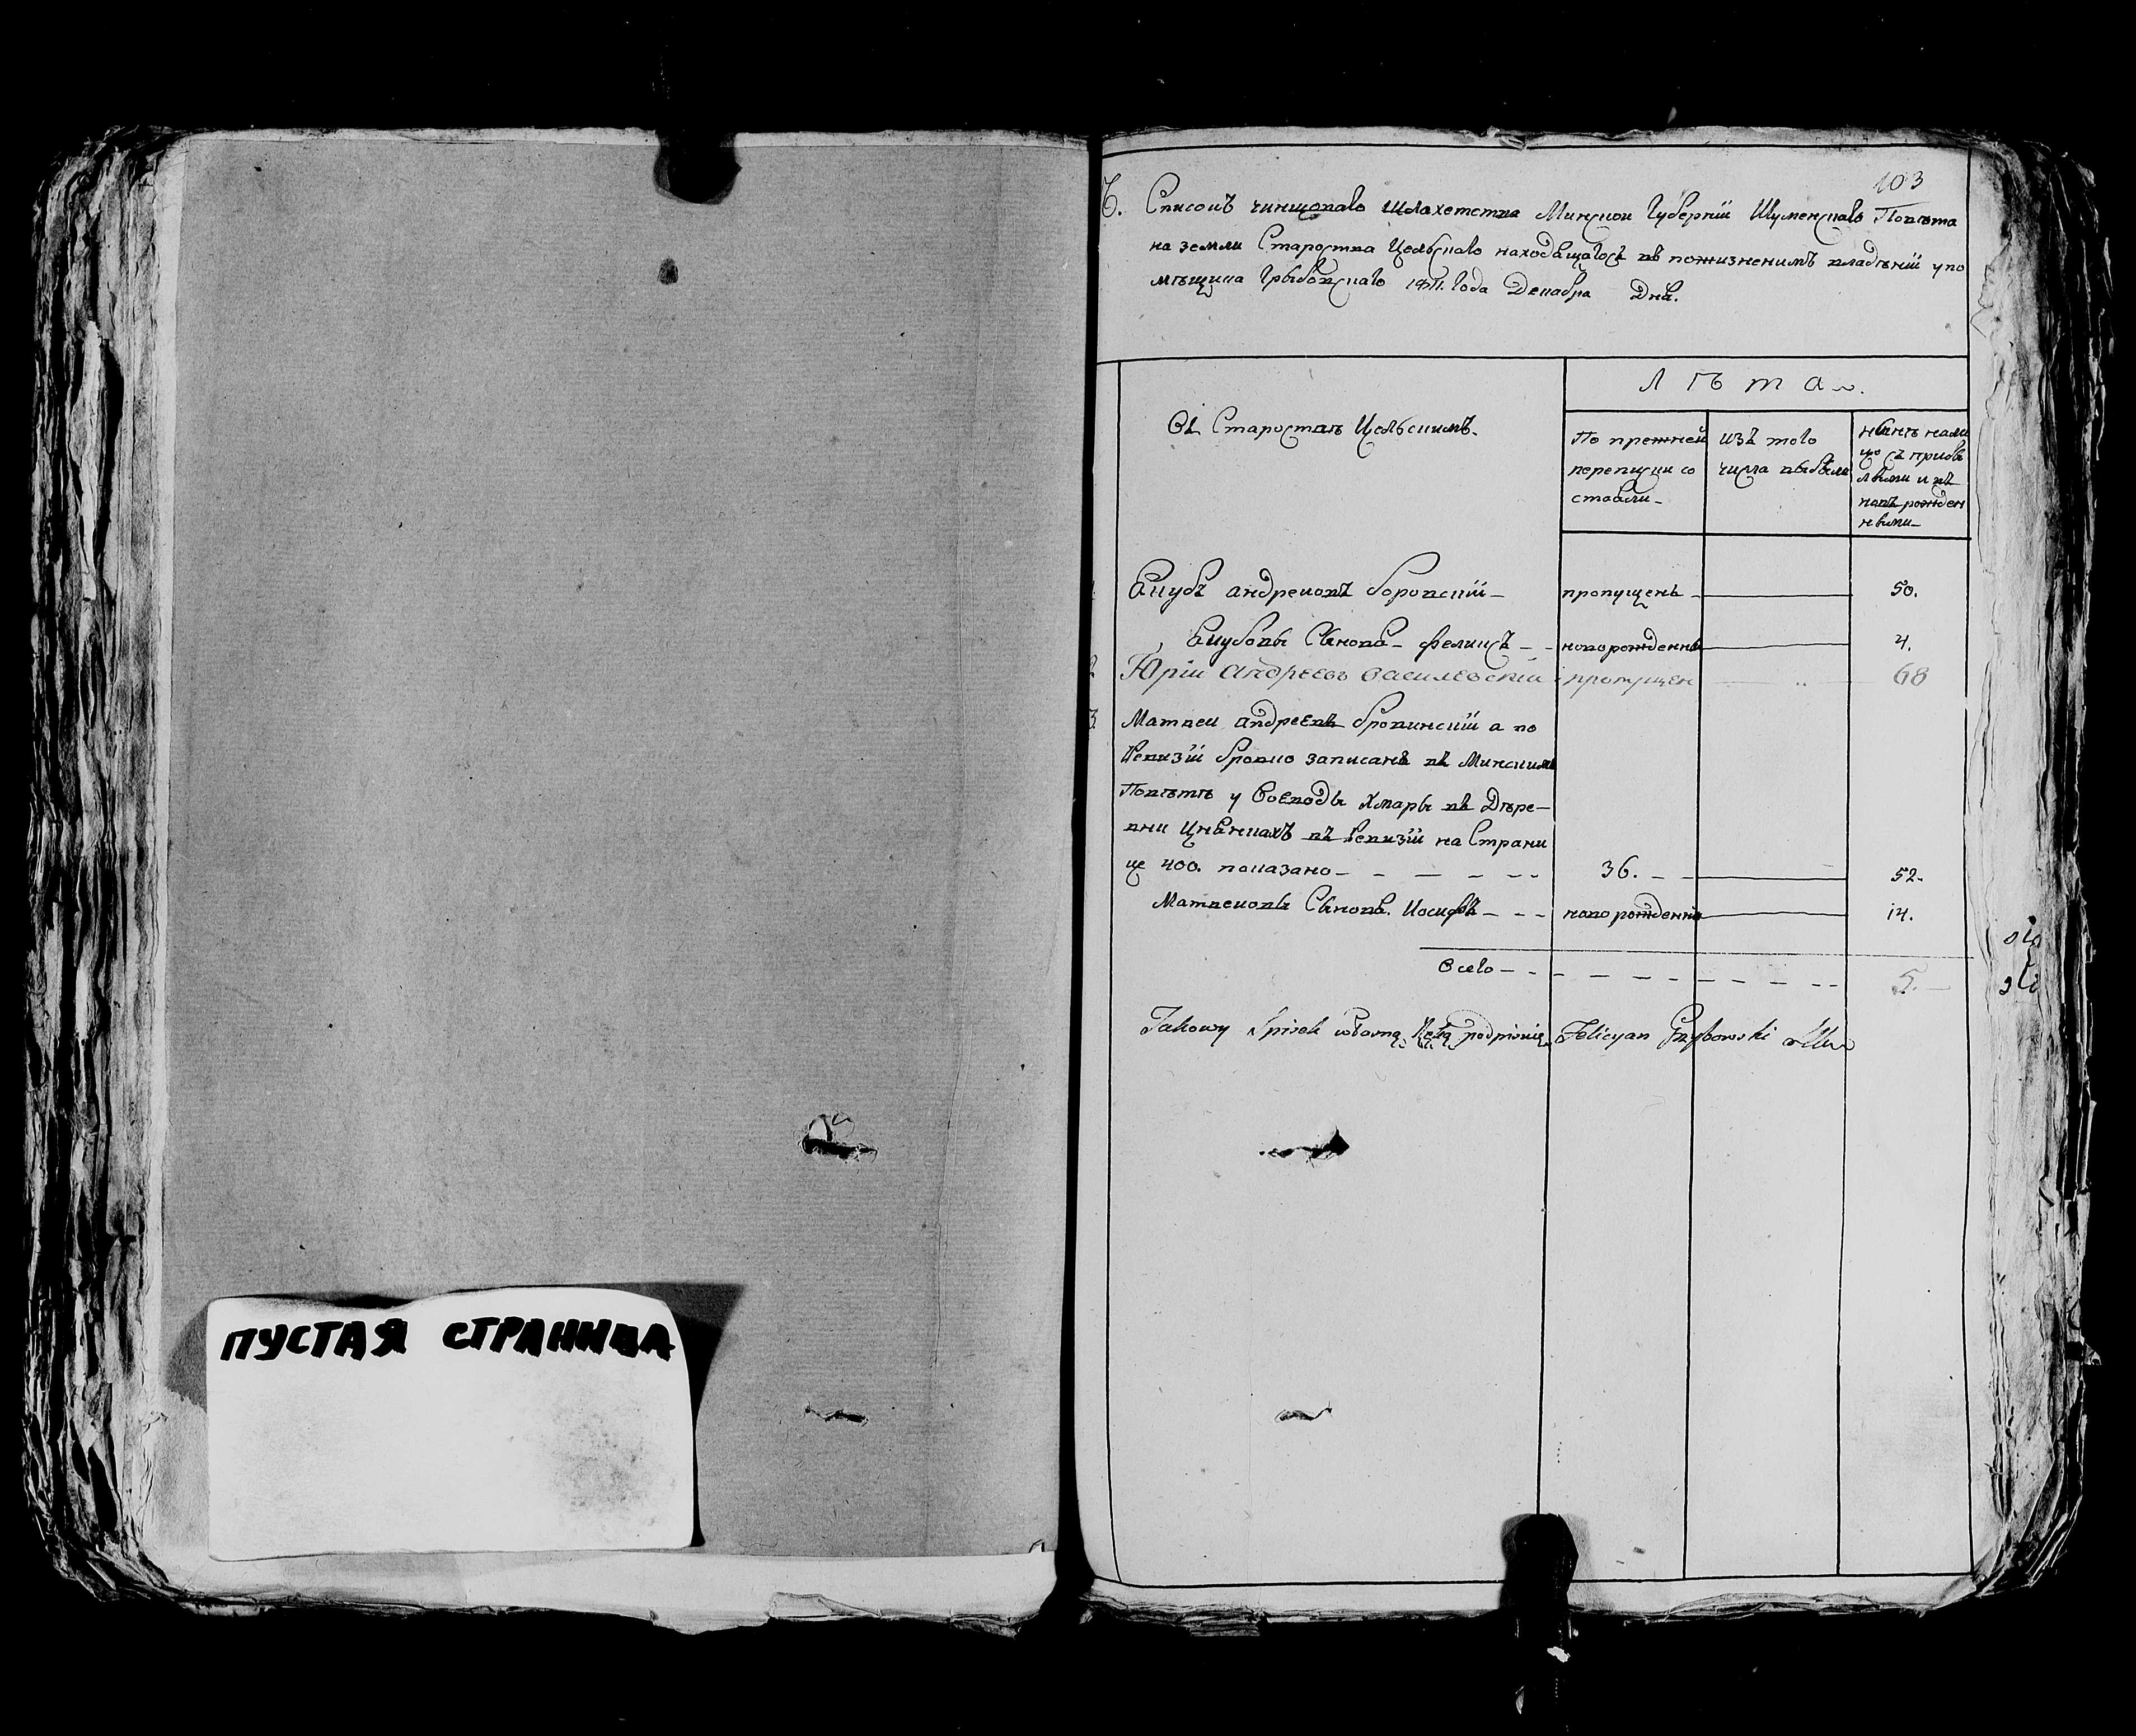 ПУСТАЯ СТРАНИЦА
103
Списокъ чиншоваго Шляхетства Минской Губерніи Игуменскаго Повѣта
на земли Староства Цельскаго находящагось въ пожизненимъ владѣніи у по
мѣщика Грыбовскаго 1811. Года Декабра Дня.
Лѣта.
Въ Староствѣ Цельскимъ.
По прежней
переписки со
стояли
изъ того
числа выбыли
нынѣ нали
цо съ прибы
лыми и въ
новъ рожден
ными
Якубъ андреювъ боровскій пропущенъ 50.
Якубовы Сынове феликсъ новорожденны 4.
2 Юрій Андреевъ Василевскій пропущен 68
3. Матвеи андреевъ бровинскій а по
Ревизій бровко записанъ въ Минскимъ
Повѣтѣ у Воеводы Хмары въ Дѣре-
вни Цнянкахъ въ Ревизій на Страни
це 400. показано 36. 52.
Матвеювы Сынове. Иосифъ новорожденны 14.
Всего 5.
Takowy Spisek własną Ręką podpisuię Felicyan Grzybowski